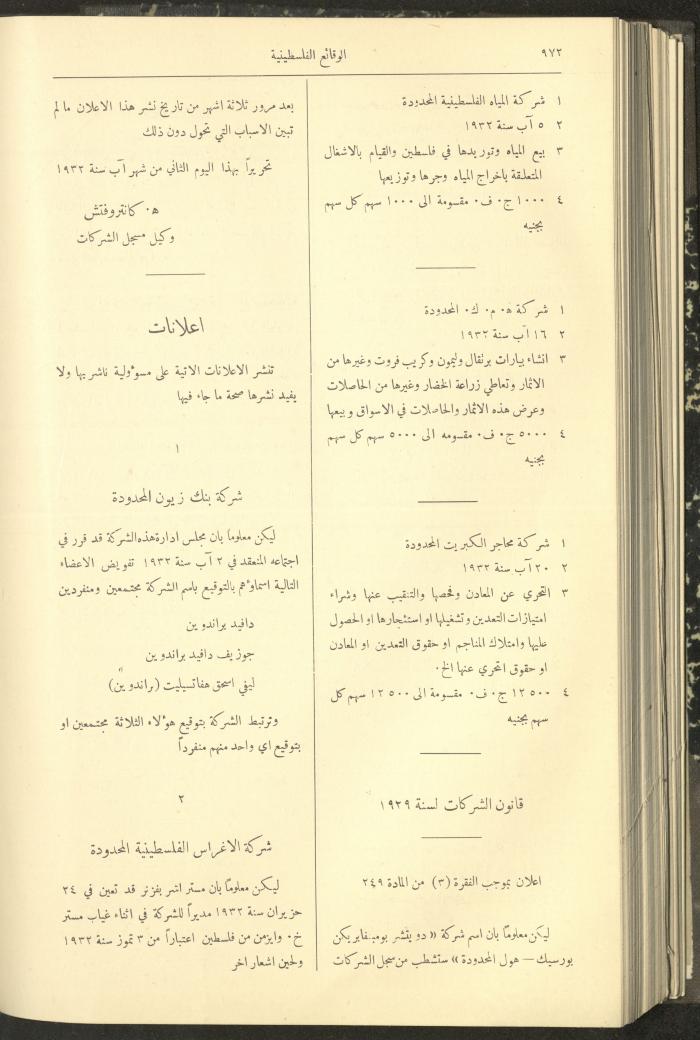 ٩٧٢
الوقائع الفلسطينية
١ شركة المياه الفلسطينية المحدودة
٢ ٥ آب سنة ١٩٣٢
٣ بيع المياه وتوريدها في فلسطين والقيام بالاشغال
المتعلقة باخراج المياه وجرها وتوزيعها
٤ ١٠٠٠ ج٠ ف٠ مقسومة الى ١٠٠٠ سهم كل سهم
بجنيه
١ شركة ه٠ م٠ ك٠ المحدودة
٢ ١٦ آب سنة ١٩٣٢
٣ انشاء بيارات برتقال وليمون وكريب فروت وغيرها من
الاثمار وتعاطي زراعة الخضار وغيرها من الحاصلات
وعرض هذه الاثمار والحاصلات في الاسواق وبيعها
٤ ٥٠٠٠ ج٠ ف٠ مقسومه الى ٥٠٠٠ سهم كل سهم
بجنيه
١ شركة محاجر الكبريت المحدودة
٢ ٢٠ آب سنة ١٩٣٢
٣ التحري عن المعادن وفحصها والتنقيب عنها وشراء
امتيازات التعدين وتشغيلها او استئجارها او الحصول
عليها وامتلاك المناجم او حقوق التعدين او المعادن
او حقوق التحري عنها الخ٠
٤ ١٢٥٠٠ ج٠ ف٠ مقسومة الى ١٢٥٠٠ سهم كل
سهم بجنيه
قانون الشركات لسنة ١٩٢٩
اعلان بموجب الفقرة (٣) من المادة ٢٤٩
ليكن معلومًا بان اسم شركة « دويتشر بوميفابريكن
بورسيك — هول المحدودة » ستشطب من سجل الشركات
بعد مرور ثلاثة اشهر من تاريخ نشر هذا الاعلان ما لم
تبين الاسباب التي تحول دون ذلك
تحريراً بهذا اليوم الثاني من شهر آب سنة ١٩٣٢
ه٠ كانتروفتش
وكيل مسجل الشركات
اعلانات
تنشر الاعلانات الاتية على مسوءولية ناشريها ولا
يفيد نشرها صحة ما جاء فيها
١
شركة بنك زيون المحدودة
ليكن معلومًا بان مجلس ادارة هذه الشركة قد قرر في
اجتماعه المنعقد في ٢ آب سنة ١٩٣٢ تفويض الاعضاء
التالية اسماوءهم بالتوقيع باسم الشركة مجتمعين ومنفردين
دافيد براندوين
جوزيف دافيد براندوين
ليفي اسحق هفاتسيليت (براندوين)
وترتبط الشركة بتوقيع هوءلاء الثلاثة مجتمعين او
بتوقيع اي واحد منهم منفرداً
٢
شركة الاغراس الفلسطينية المحدودة
ليكن معلومًا بان مستر اشر بفزنر قد تعين في ٢٤
حزيران سنة ١٩٣٢ مديراً للشركة في اثناء غياب مستر
خ٠ وايزمن من فلسطين اعتباراً من ٣ تموز سنة ١٩٣٢
ولحين اشعار اخر